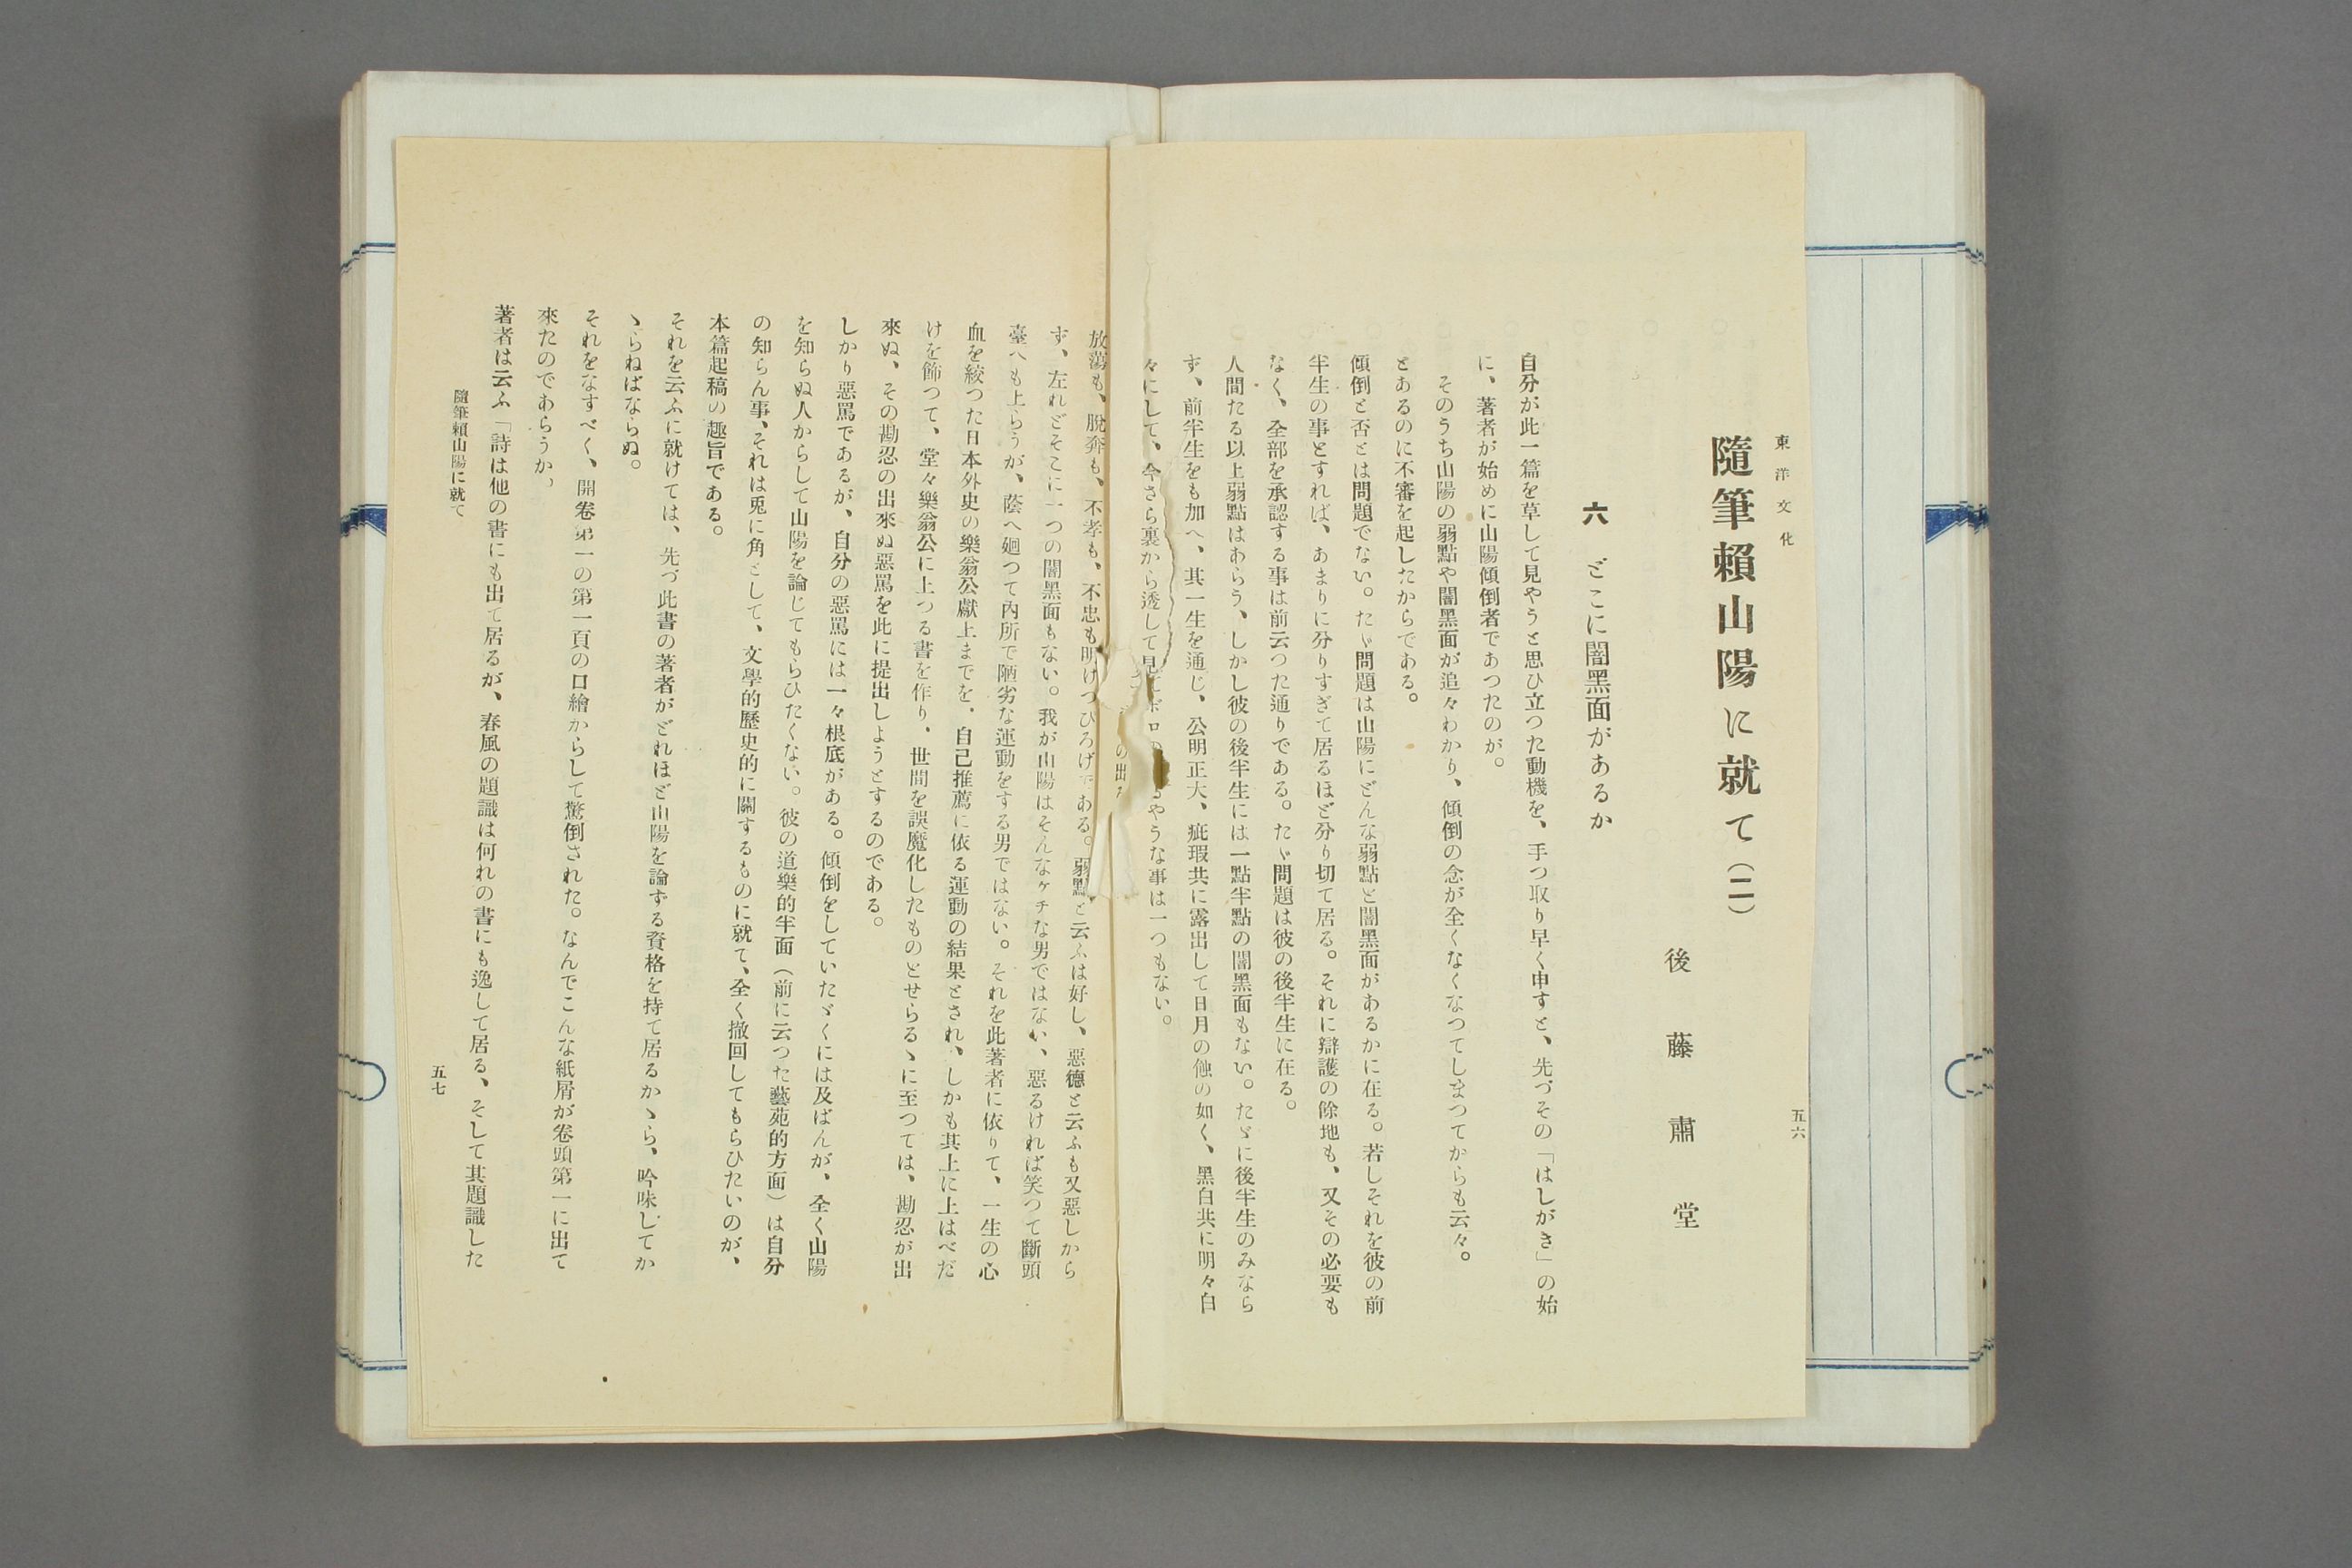 東洋文化
五六
隨筆賴山陽に就て（二）
後藤肅堂
六　どこに闇黑面があるか
自分が此一篇を草して見やうと思ひ立つた動機を、手つ取り早く申すと、先づその「はしがき」の始
に、著者が始めに山陽傾倒者であつたのが。
そのうち山陽の弱點や闇黑面が追々わかり、傾倒の念が全くなくなつてしまつてからも云々。
とあるのに不審を起したからである。
傾倒と否とは問題でない。たゞ問題は山陽にどんな弱點と闇黑面があるかに在る。若しそれを彼の前
半生の事とすれば、あまりに分りすぎて居るほど分り切て居る。それに辯護の餘地も、又その必要も
なく、全部を承認する事は前云つた通りである。たゞ問題は彼の後半生に在る。
人間たる以上弱點はあらう、しかし彼の後半生には一點半點の闇黑面もない。たゞに後半生のみなら
ず、前半生をも加へ、其一生を通じ、公明正大、疵瑕共に露出して日月の蝕の如く、黑白共に明々白
々にして、今さら裏から透して見てボロの出るやうな事は一つもない。
放蕩も、脫奔も、不孝も、不忠も明けつひろげである。弱點と云ふは好し、惡德と云ふも又惡しから
ず、左れどそこに一つの闇黑面もない。我が山陽はそんなケチな男ではない、惡るければ笑つて斷頭
臺へも上らうが、蔭へ廻つて內所で陋劣な運動をする男ではない。それを此著者に依りて、一生の心
血を絞つた日本外史の樂翁公獻上までを、自己推薦に依る運動の結果とされ、しかも其上に上はべだ
けを飾つて、堂々樂翁公に上つる書を作り、世間を誤魔化したものとせらるゝに至つては、勘忍が出
來ぬ、その勘忍の出來ぬ惡罵を此に提出しようとするのである。
しかり惡罵であるが、自分の惡罵には一々根底がある。傾倒をしていたゞくには及ばんが、全く山陽
を知らぬ人からして山陽を論じてもらひたくない。彼の道樂的半面（前に云つた藝苑的方面）は自分
の知らん事、それは兎に角として、文學的歷史的に關するものに就て、全く撤回してもらひたいのが、
本篇起稿の趣旨である。
それを云ふに就けては、先づ此書の著者がどれほど山陽を論ずる資格を持て居るかゝら、吟味してか
ゝらねばならぬ。
それをなすべく、開卷第一の第一頁の口繪からして驚倒された。なんでこんな紙屑が卷頭第一に出て
來たのであらうか、
著者は云ふ「詩は他の書にも出て居るが、春風の題識は何れの書にも逸して居る、そして其題識した
隨筆賴山陽に就て
五七